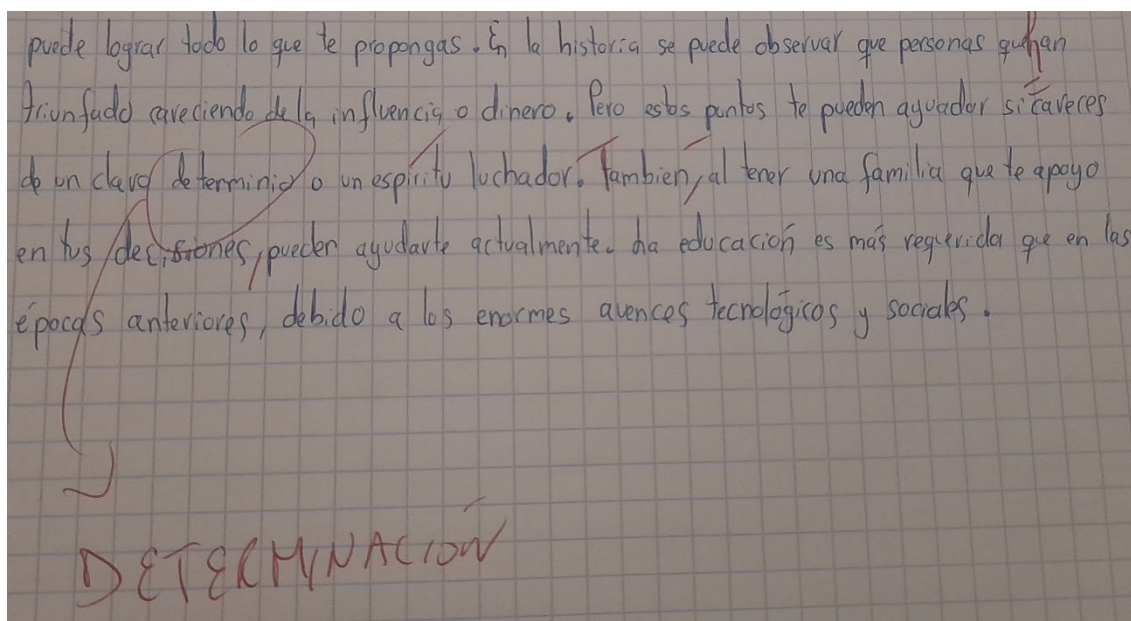 puede lograr todo lo que te propongas. En la historia se puede observar que personas que han
triunfado careciendo de la influencia o dinero. Pero estos puntos te pueden ayuador si careces
de un clavo determinio o un espíritu luchador. Tambien, al tener una familia que te apoyo
en tus decisiones, pueden ayudarte actualmente. La educación es más requerida que en las
épocas anteriores, debido a los enormes avences tecnológicos y sociales.
DETERMINACIÓN